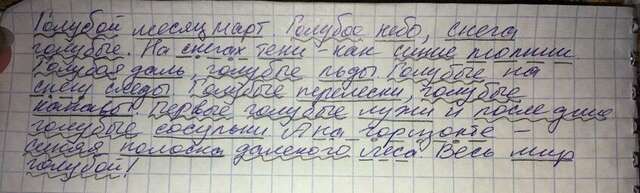 Голубой месяц март. Голубое небо, снега
голубые. На снегах тени - как синие молнии.
Голубая даль, голубые льды. Голубые на
снегу следы. Голубые перелески, голубые
канавы. Первые голубые лужи и последние
голубые сосульки. А на горизонте -
синяя полоска далекого леса. Весь мир
голубой!